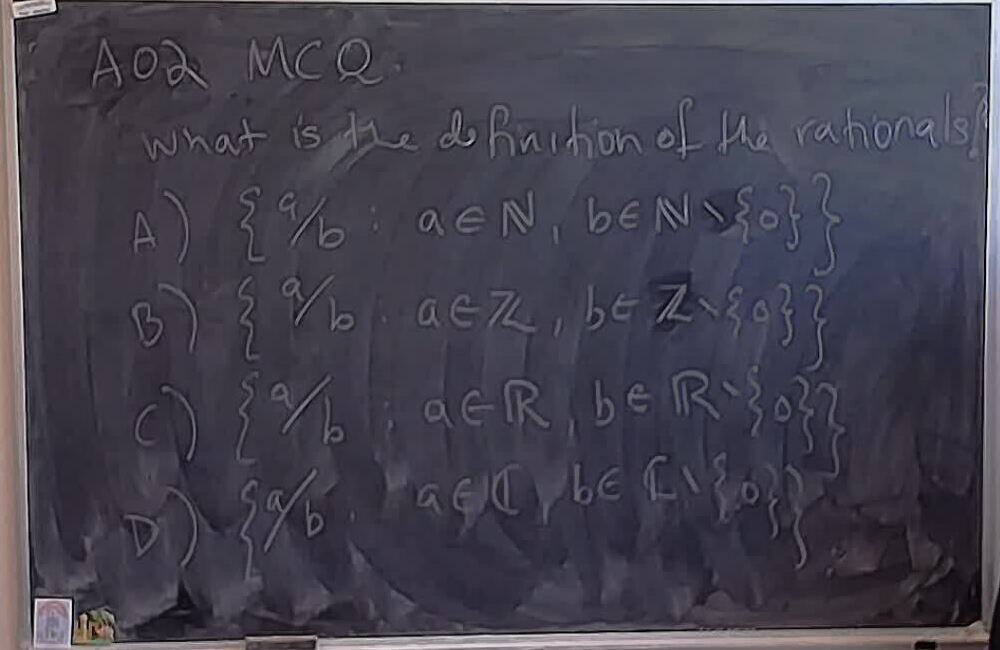 A02 MCQ.
What is the definition of the rationals?
A) {a/b : a∈ℕ, b∈ℕ∖{0}}
B) {a/b : a∈ℤ, b∈ℤ∖{0}}
C) {a/b : a∈ℝ, b∈ℝ∖{0}}
D) {a/b : a∈ℂ, b∈ℂ∖{0}}